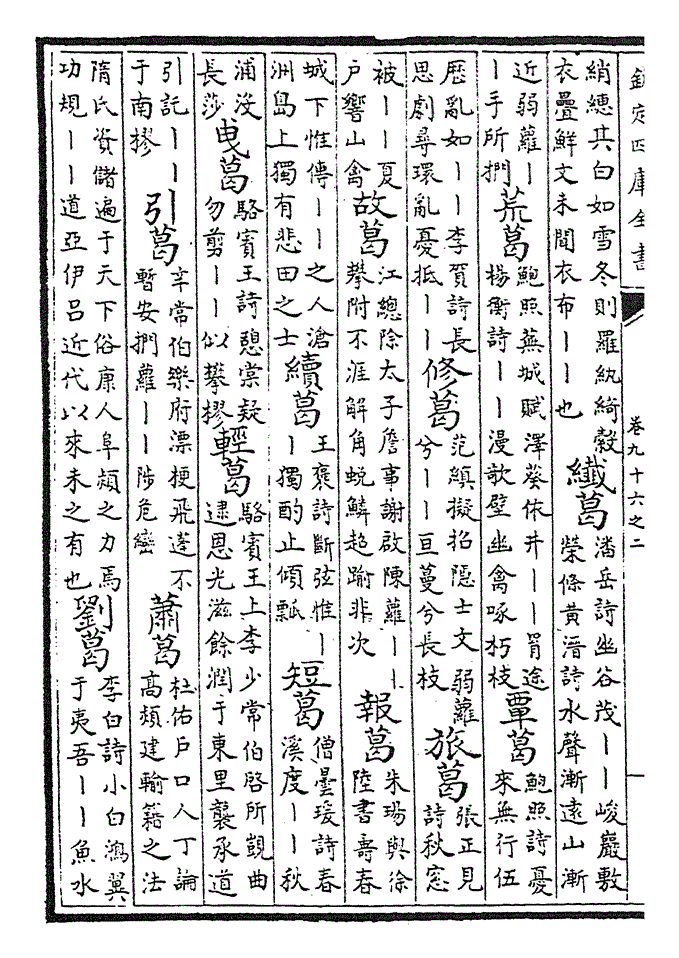 欽定四庫全書
卷九十六之二
綃總其白如雪冬則羅紈綺縠
衣疊鮮文未聞衣布丨丨也
纖葛
潘岳詩幽谷茂丨丨峻巖敷
榮條黄溍詩水聲漸遠山漸
近弱蘿丨
丨手所捫
荒葛
鮑照蕪城賦澤葵依井丨丨罥途
楊衡詩丨丨漫歌壁幽禽啄朽枝
覃葛
鮑照詩憂
來無行伍
歴亂如丨丨李賀詩長
思劇尋環亂憂抵丨丨
修葛
范縝擬招隱士文弱蘿
兮丨丨亘蔓兮長枝
旅葛
張正見
詩秋窓
被丨丨夏
户響山禽
故葛
江總除太子詹事謝啟陳蘿丨丨
攀附不涯解角蛻鱗超踰非次
報葛
朱瑒與徐
陸書壽春
城下惟傳丨丨之人滄
洲島上獨有悲田之士
續葛
王褒詩斷弦惟丨
丨獨酌止傾瓢
短葛
僧曇瑗詩春
溪度丨丨秋
浦没
長莎
曵葛
駱賓王詩憩棠疑
勿剪丨丨似攀樛
輕葛
駱賓王上李少常伯啓所覬曲
逮恩光滋餘潤于東里襲承道
引託丨丨
于南樛
引葛
辛常伯樂府漂梗飛蓬不
暫安捫蘿丨丨陟危巒
蕭葛
杜佑户口人丁論
高熲建輸籍之法
隋氏資儲遍于天下俗康人阜熲之力焉
功規丨丨道亞伊吕近代以來未之有也
劉葛
李白詩小白鴻翼
于夷吾丨丨魚水